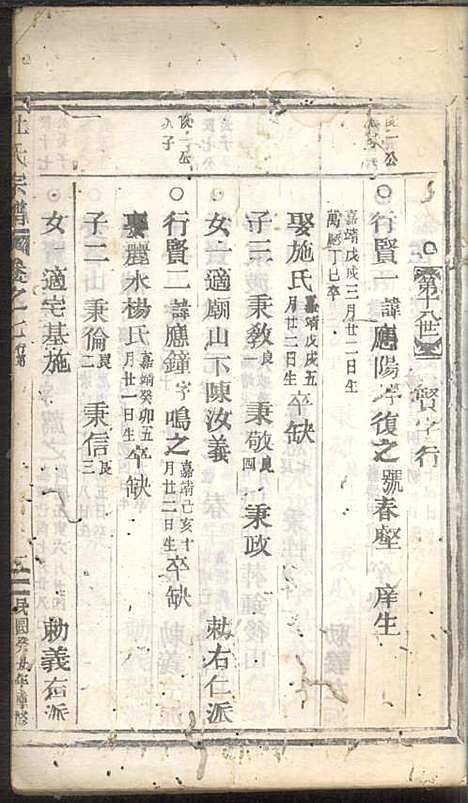 第十八世 賢字行
行賢一諱應陽字復之號春壑 庠生
嘉靖戊戌三月廿二日生
萬曆丁巳卒
娶施氏嘉靖戊戌五月廿二日生卒缺
子三 秉教良 秉敬良四 秉政
女一適廟山下陳汝義 勅右仁派
行賢二諱應鐘字鳴之嘉靖己亥十月廿二日生卒缺
娶麗水楊氏嘉靖癸卯五月廿一日生卒缺
子二 秉倫良二 秉信良三
女 適宅基施 勅義右派
杜氏宗譜 卷之 民國癸